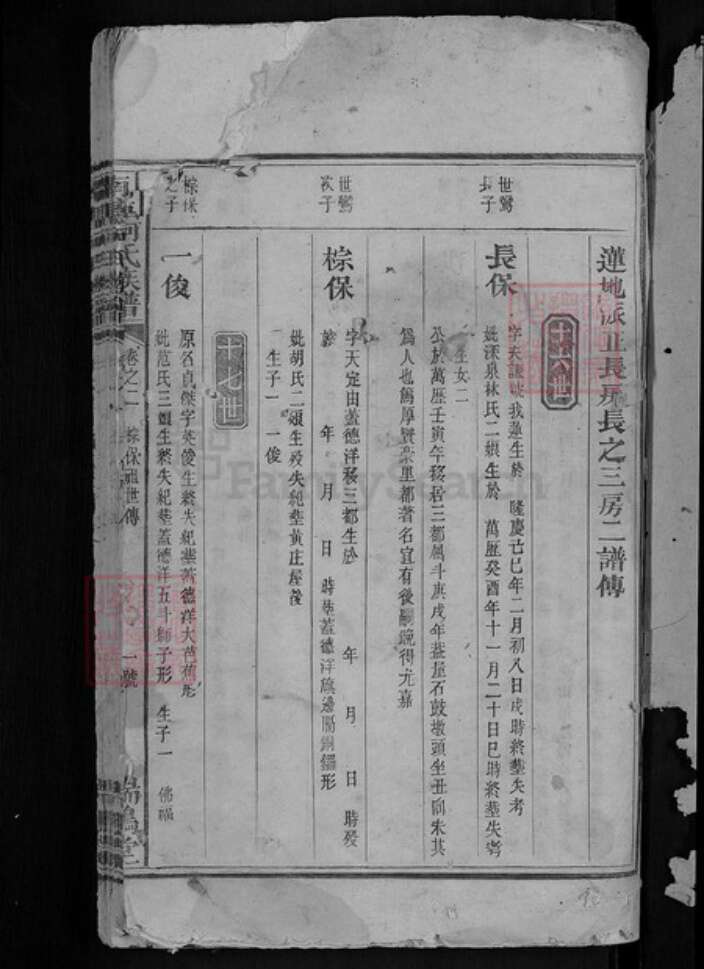 蓮地派正長房長之三房二譜傳
十八世
世鸞長子
長保
生於 隆慶己巳年二月初八日戌時終塟失考
妣深泉林氏二娘生於 萬歷癸酉年十一月二十日巳時終塟失考
生女二
公於萬歷壬寅年移居三都 斗庚戌年葢屋石鼓墩頭坐丑向未其
為人也篤厚賢 里都著名宜有後嗣 得 嘉
世鸞次子
棕保
字天定由蓋德洋移三都生於 年 月 日 時歿
於 年 月 日 時塟蓋德洋 邊屬銅鑼形
妣胡氏二娘生歿失紀塟黃庄屋後
生子一 一俊
十九世
棕保之子
一俊
原名貞傑字英俊生終失紀塟蓋德洋大芭蕉形
妣范氏三娘生終失紀塟蓋德洋五斗獅子形 生子一 佛福
氏族譜
卷之二 棕保 世傳 一號
FamilySearch